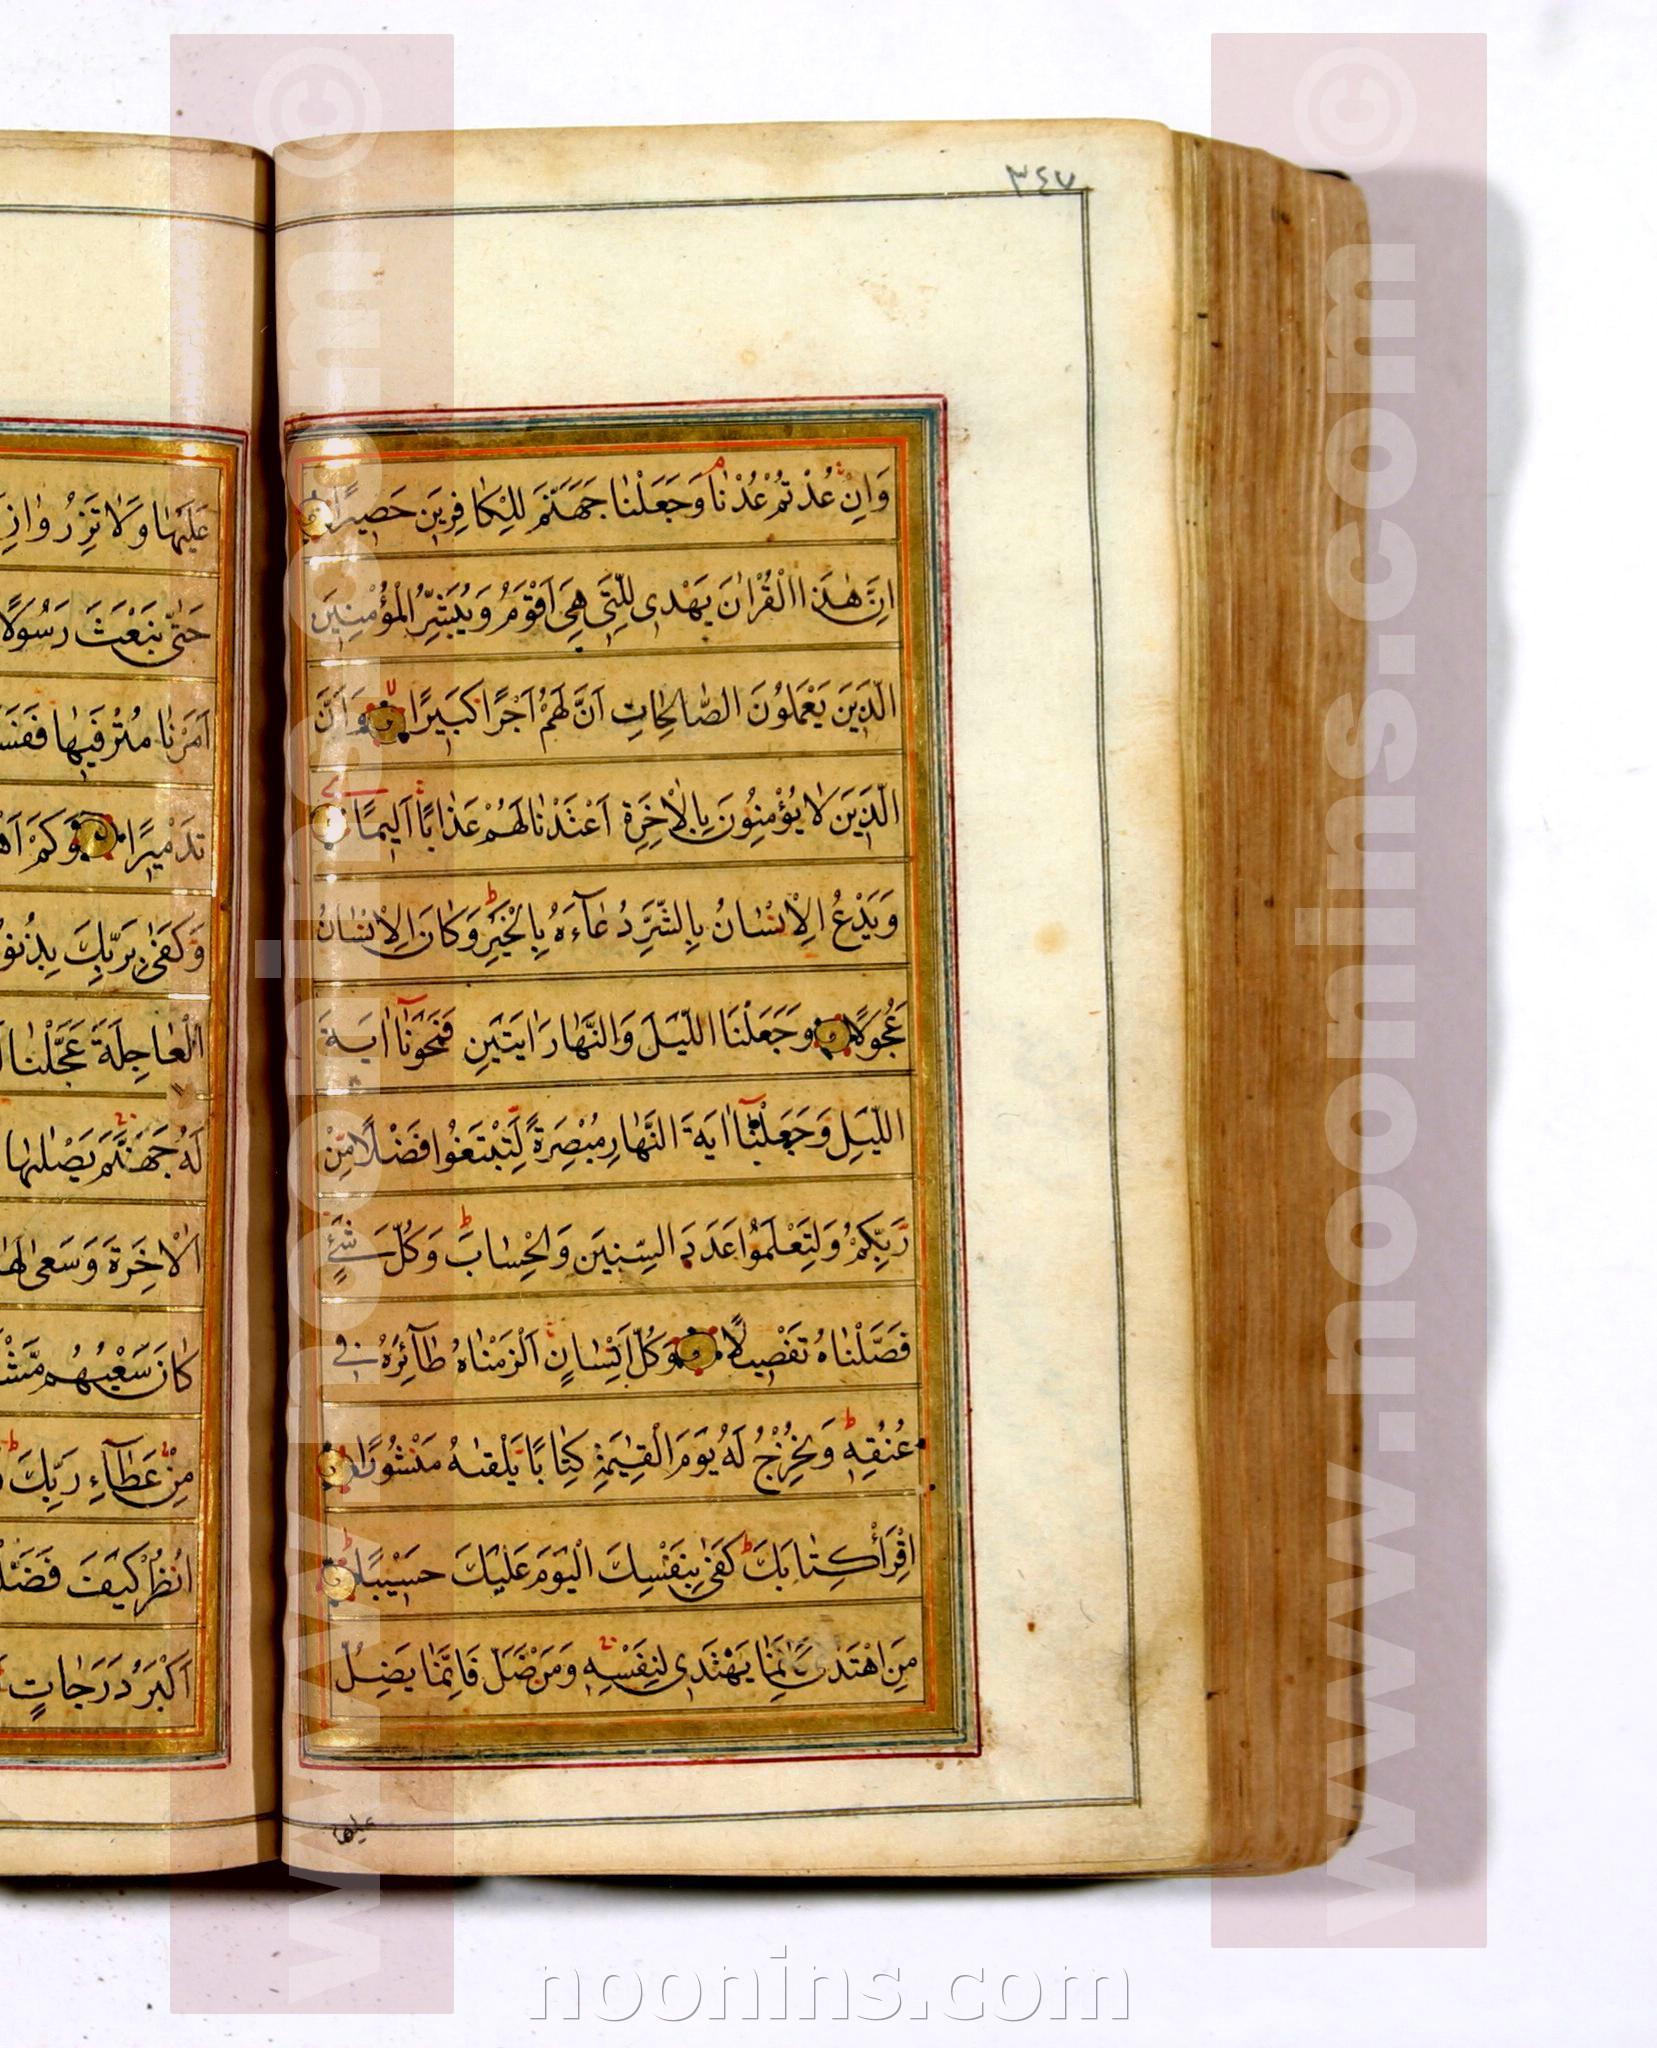 ٣٤٧
وَاِنْ عُدْتُمْ عُدْنَا وَجَعَلْنَا جَهَنَّمَ لِلْكَافِرِينَ حَصِيرًا
اِنَّ هٰذَا الْقُرْاٰنَ يَهْدِى لِلَّتِى هِىَ اَقْوَمُ وَيُبَشِّرُ الْمُؤْمِنِينَ
الَّذِينَ يَعْمَلُونَ الصَّالِحَاتِ اَنَّ لَهُمْ اَجْرًا كَبِيرًا وَاَنَّ
الَّذِينَ لَا يُؤْمِنُونَ بِالْاٰخِرَةِ اَعْتَدْنَا لَهُمْ عَذَابًا اَلِيمًا
وَيَدْعُ الْاِنْسَانُ بِالشَّرِّ دُعَاءَهُ بِالْخَيْرِ وَكَانَ الْاِنْسَانُ
عَجُولًا وَجَعَلْنَا اللَّيْلَ وَالنَّهَارَ اٰيَتَيْنِ فَمَحَوْنَا اٰيَةَ
اللَّيْلِ وَجَعَلْنَا اٰيَةَ النَّهَارِ مُبْصِرَةً لِتَبْتَغُوا فَضْلًا مِنْ
رَبِّكُمْ وَلِتَعْلَمُوا عَدَدَ السِّنِينَ وَالْحِسَابَ وَكُلَّ شَىْءٍ
فَصَّلْنَاهُ تَفْصِيلًا وَكُلَّ اِنْسَانٍ اَلْزَمْنَاهُ طَآئِرَهُ فِى
عُنُقِهِ وَنُخْرِجُ لَهُ يَوْمَ الْقِيٰمَةِ كِتَابًا يَلْقٰىهُ مَنْشُورًا
اِقْرَأْ كِتَابَكَ كَفٰى بِنَفْسِكَ الْيَوْمَ عَلَيْكَ حَسِيبًا
مَنِ اهْتَدٰى فَاِنَّمَا يَهْتَدِى لِنَفْسِهِ وَمَنْ ضَلَّ فَاِنَّمَا يَضِلُّ
عليها
عَلَيْهَا وَلَا تَزِرُ
حَتّٰى نَبْعَثَ رَسُولًا
اَمَرْنَا مُتْرَفِيهَا
تَدْمِيرًا وَكَمْ
وَكَفٰى بِرَبِّكَ
الْعَاجِلَةَ عَجَّلْنَا
لَهُ جَهَنَّمَ يَصْلٰيهَا
الْاٰخِرَةَ وَسَعٰى لَهَا
كَانَ سَعْيُهُمْ
مِنْ عَطَآءِ رَبِّكَ
اُنْظُرْ كَيْفَ
اَكْبَرُ دَرَجَاتٍ
© www.noonins.com
© www.noonins.com
noonins.com